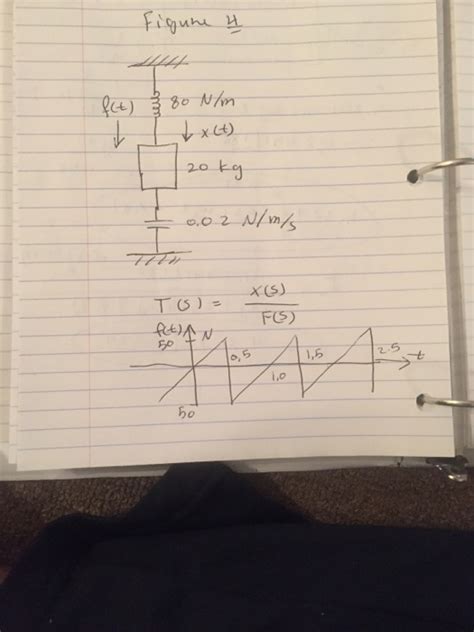 Figure 4
f(t) 80 N/m
x(t)
20 kg
0.02 N/m/s
T(s) = X(s)
F(s)
f(t) N
50
0,5 1,5 2.5 t
1,0
50